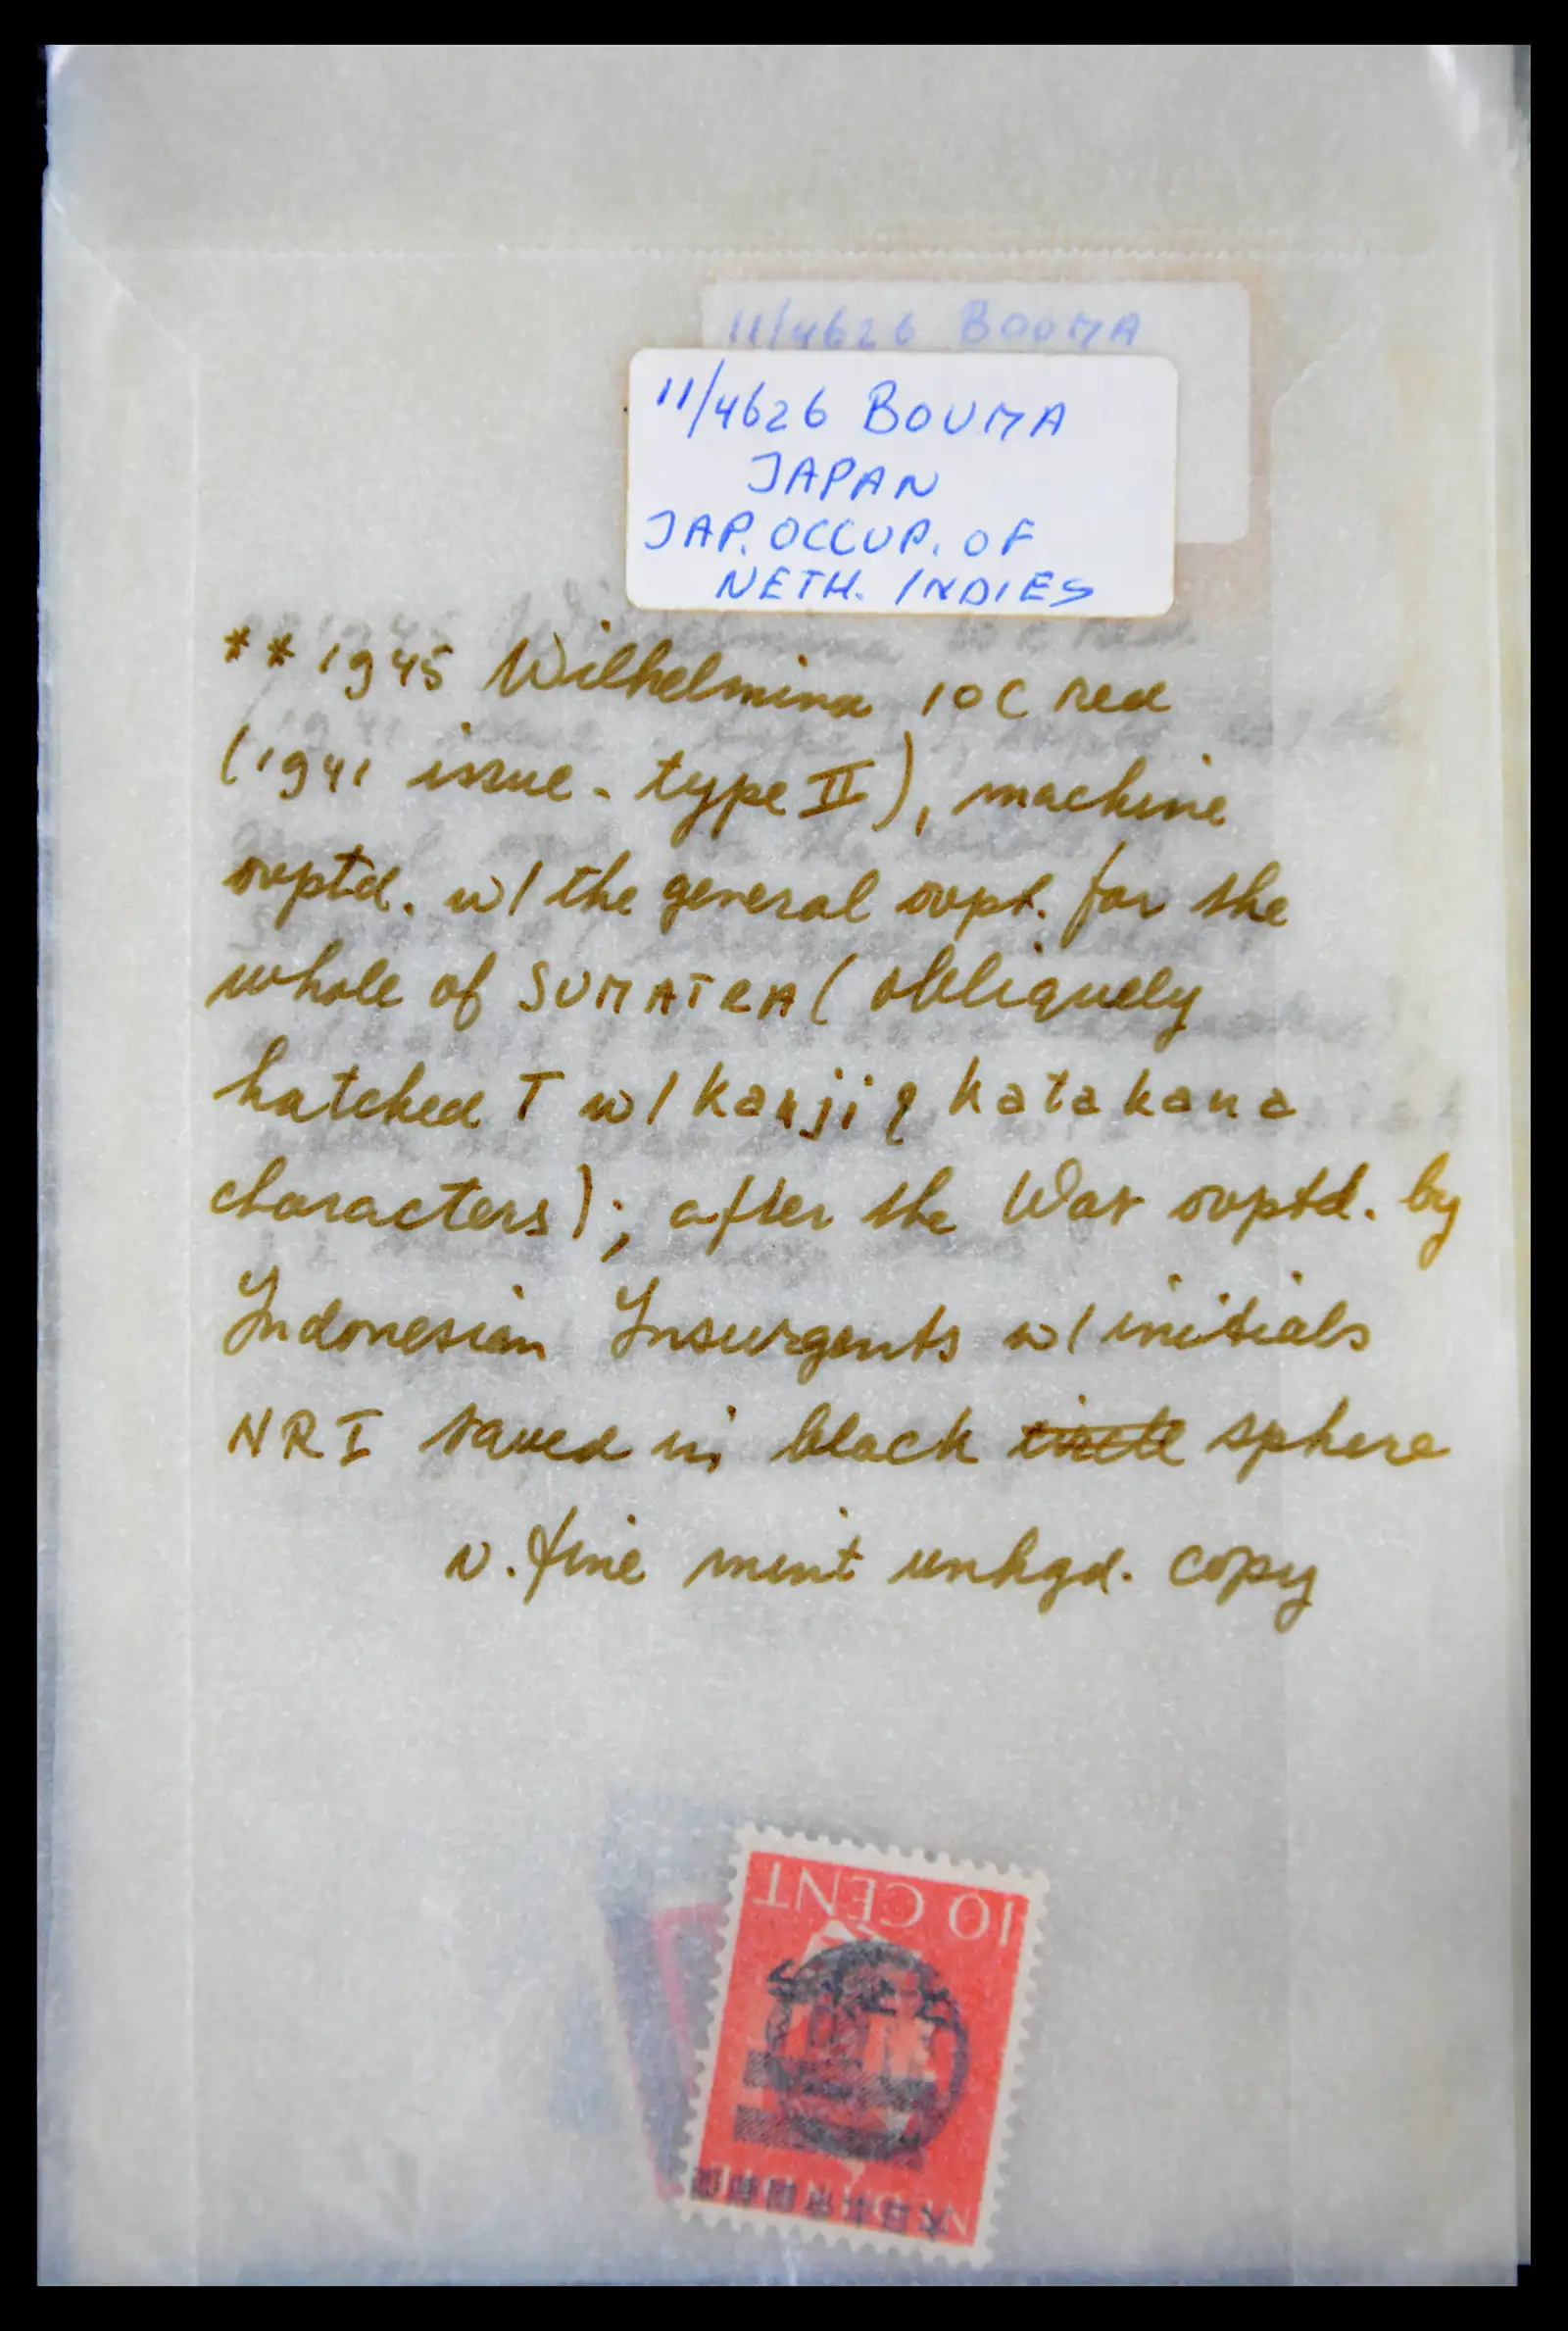 11/4626 BOUMA
11/4626 BOUMA
JAPAN
JAP. OCCUP. OF
NETH. INDIES
** 1945 Wilhelmina 10C red
(1941 issue - type II), machine
ovptd. w/ the general ovpt. for the
whole of SUMATRA (obliquely
hatched T w/ kanji & katakana
characters); after the War ovptd. by
Indonesian Insurgents w/ initials
NRI in black circle sphere
v. fine mint unhgd. copy
10 CENT